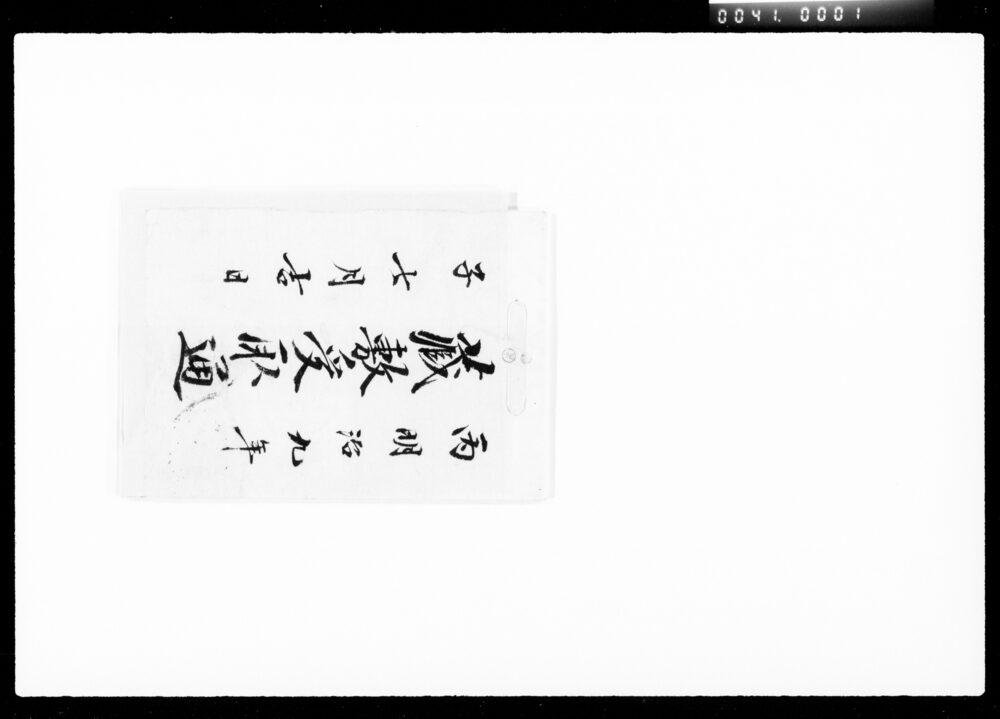 0041. 0001
丙明治九年
蔵敷受取通
子七月吉日